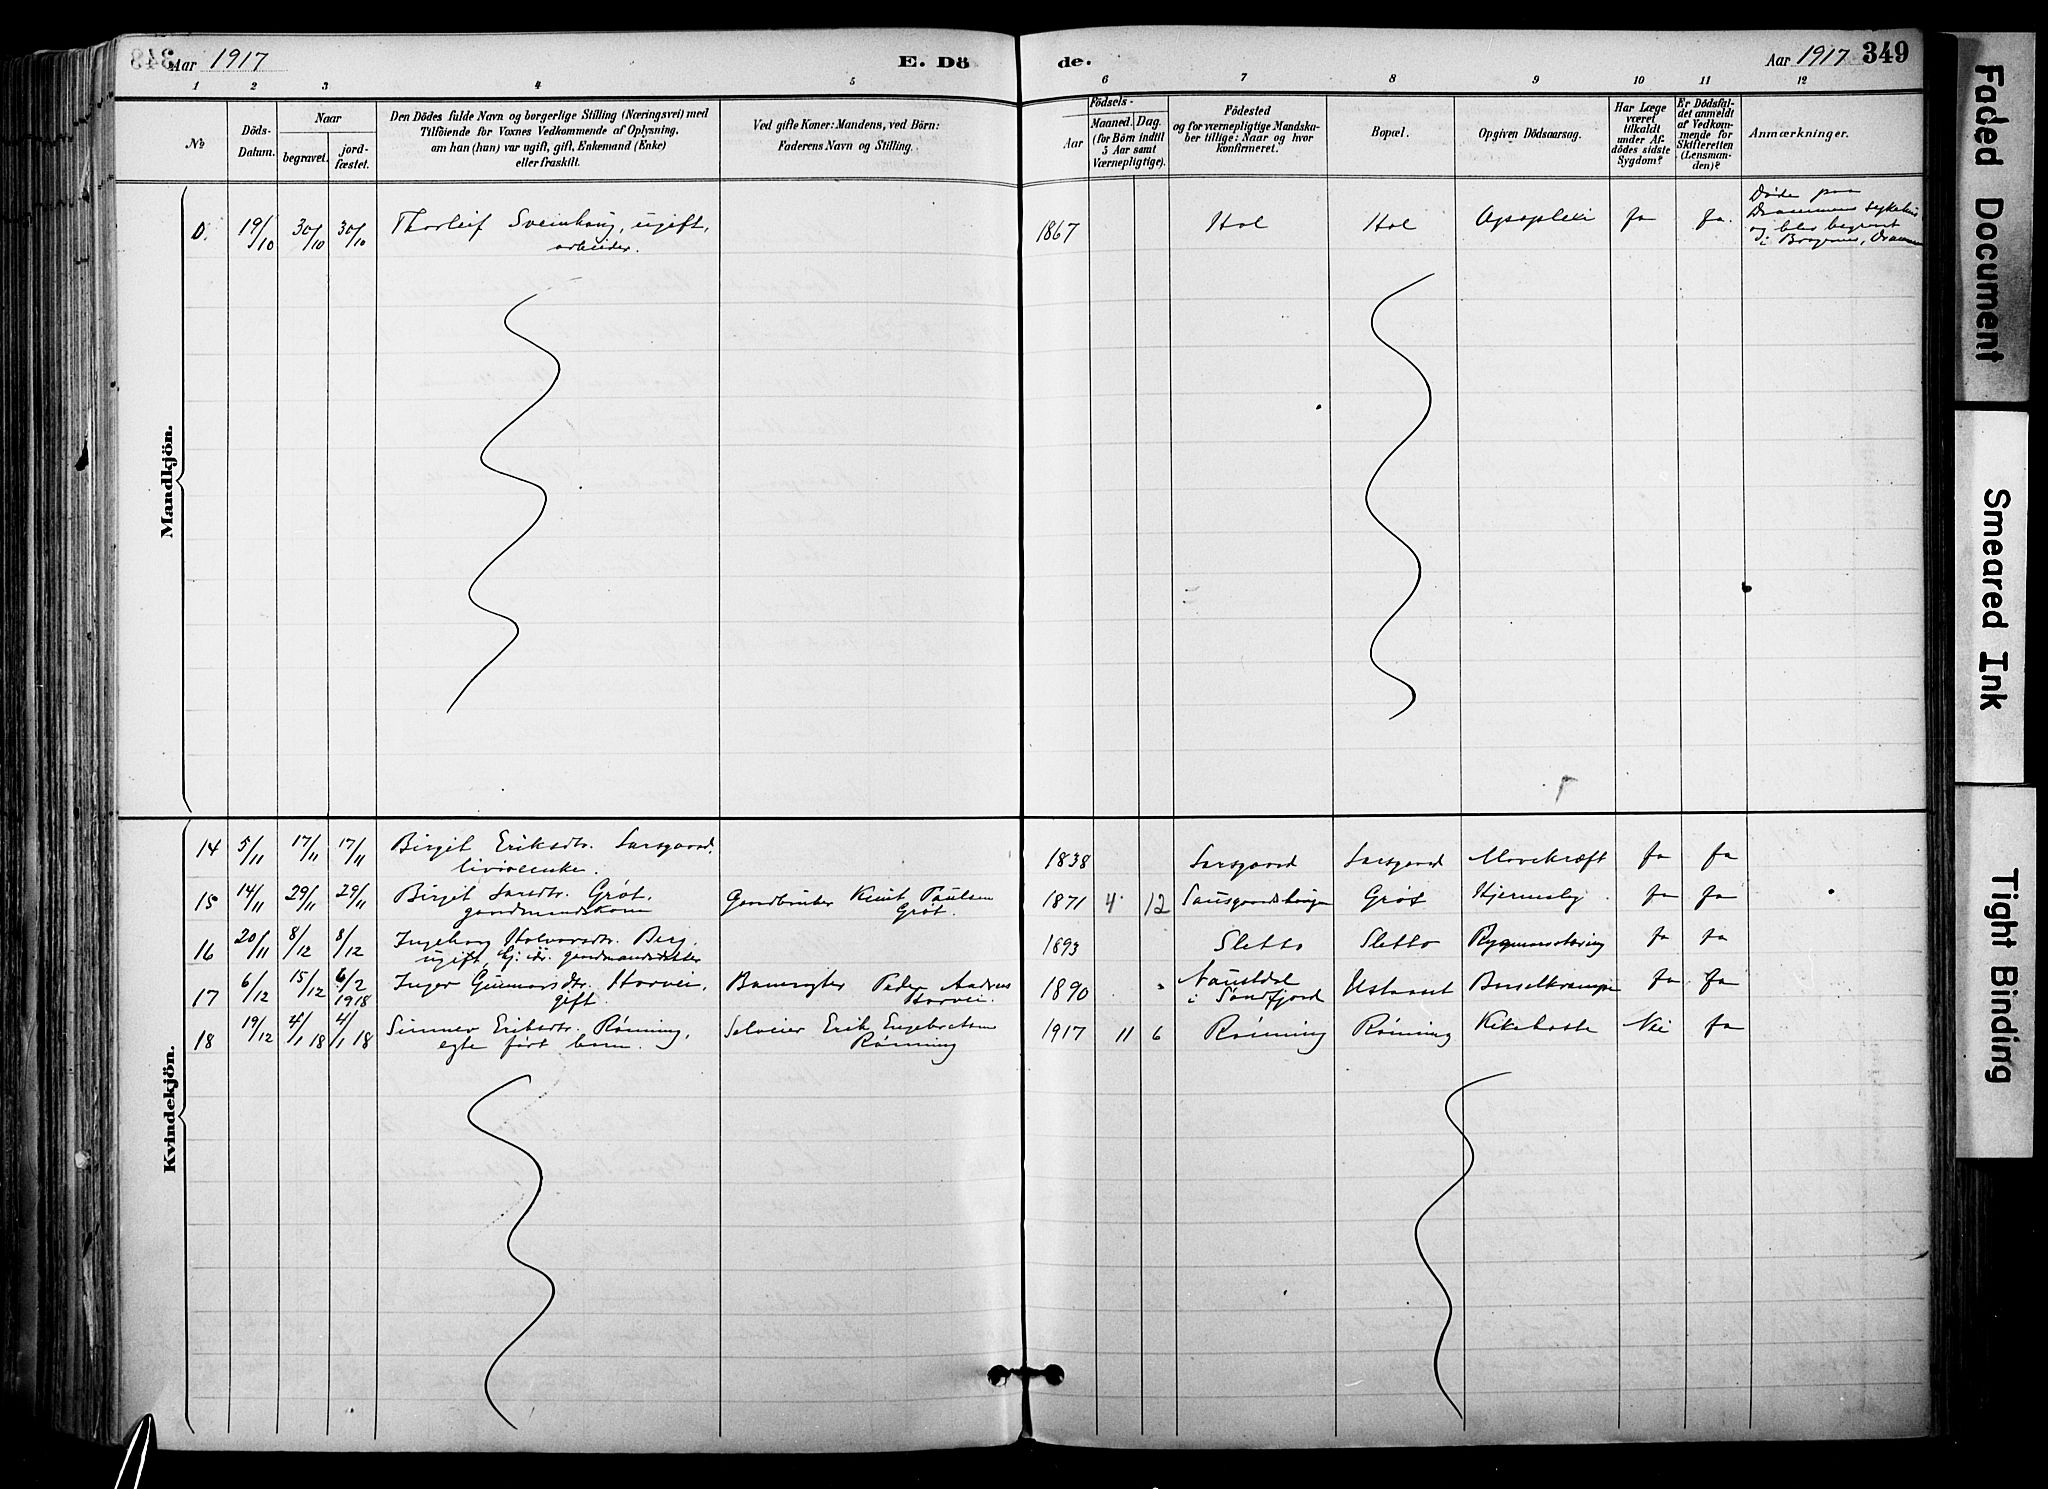 Aar 1917
E. Dö
de.
Aar 1917 349
1 2 3 4 5 6 7 8 9 10 11 12
No
Döds-
Datum.
Naar
begravet.
jord-
fæstet.
Den Dödes fulde Navn og borgerlige Stilling (Næringsvei) med
Tilföiende for Voxnes Vedkommende af Oplysning,
om han (hun) var ugift, gift, Enkemand (Enke)
eller fraskilt.
Ved gifte Koner: Mandens, ved Börn:
Faderens Navn og Stilling.
Födsels-
Aar
Maaned. Dag.
(for Börn indtil
5 Aar samt
Værnepligtige).
Födested
og for værnepligtige Mandska-
ber tillige: Naar og hvor
konfirmeret.
Bopæl.
Opgiven Dödsaarsag.
Har Læge
været
tilkaldt
under Af-
dödes sidste
Sygdom?
Er Dödsfal-
det anmeldt
af Vedkom-
mende for
Skifteretten
(Lensman-
den)?
Anmærkninger.
Mandkjön.
D. 19/10 30/10 30/10 Thorleif Sveinhaug, ugift,
arbeider.
1867 Hol Hol ja ja.
Døde paa
Drammens sykehus
og blev begravet
i Bragernes, Drammen
Kvindekjön.
14 5/11 17/11 17/11 Birgit Eriksdtr. 1838 ja ja
15 14/11 29/11 29/11 Birgit Grøt,
gaardmandskone
Gaardbruker Knut Paulsen
Grøt.
1871 4 12 Grøt ja ja
16 20/11 8/12 8/12 Ingeborg Halvorsdtr. Berg,
ugift,
1893 Sletto Sletto ja ja
17 6/12 15/12 6/2 1918 Inger Gunnarsdtr. Storvei,
gift.
Banevogter Peder Andreas
Storvei.
1890 Naustdal
i Søndfjord Ustaoset ja ja
18 19/12 4/1 18 4/1 18 Eriksdtr. Rønning,
egte født barn.
Selveier Erik Engebretsen
Rønning
1917 11 6 Rønning Rønning Kikhoste Nei ja
Faded Document
Smeared Ink
Tight Binding